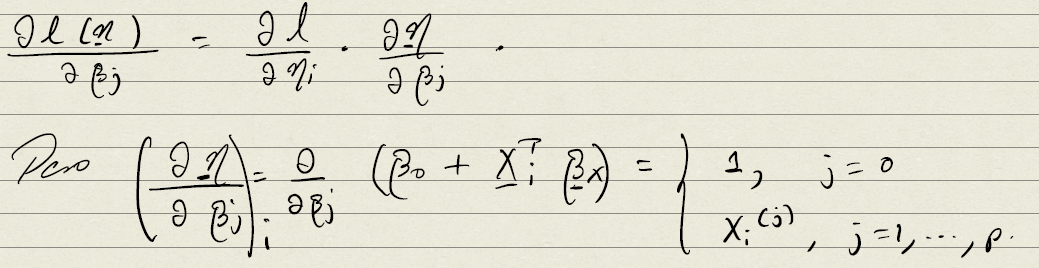 ∂l(η)/∂βj = ∂l/∂ηi · ∂η/∂βj .
Pero (∂η/∂βj)i = ∂/∂βj (β0 + Xiᵀ βx) = { 1, j = 0
Xi^(j), j = 1, ..., p.